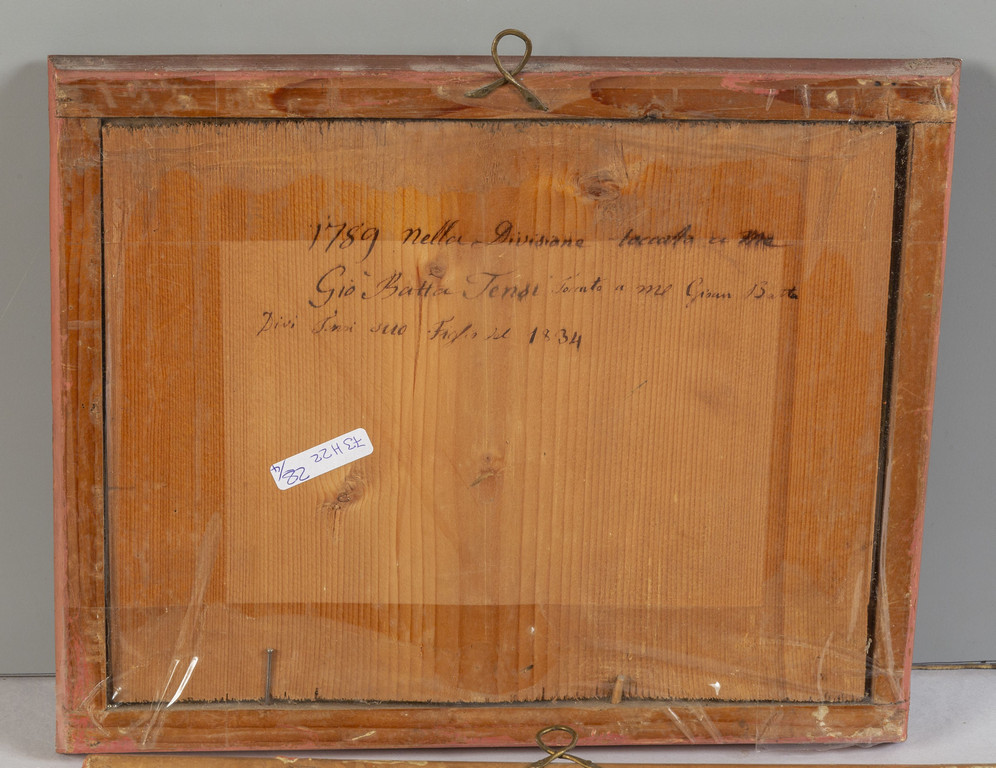 1789 nella Divisione toccata a me
Giò Batta Tensi Tocato a me Giovan Batta
Tensi suo Figlio del 1834
73 H22
28/4